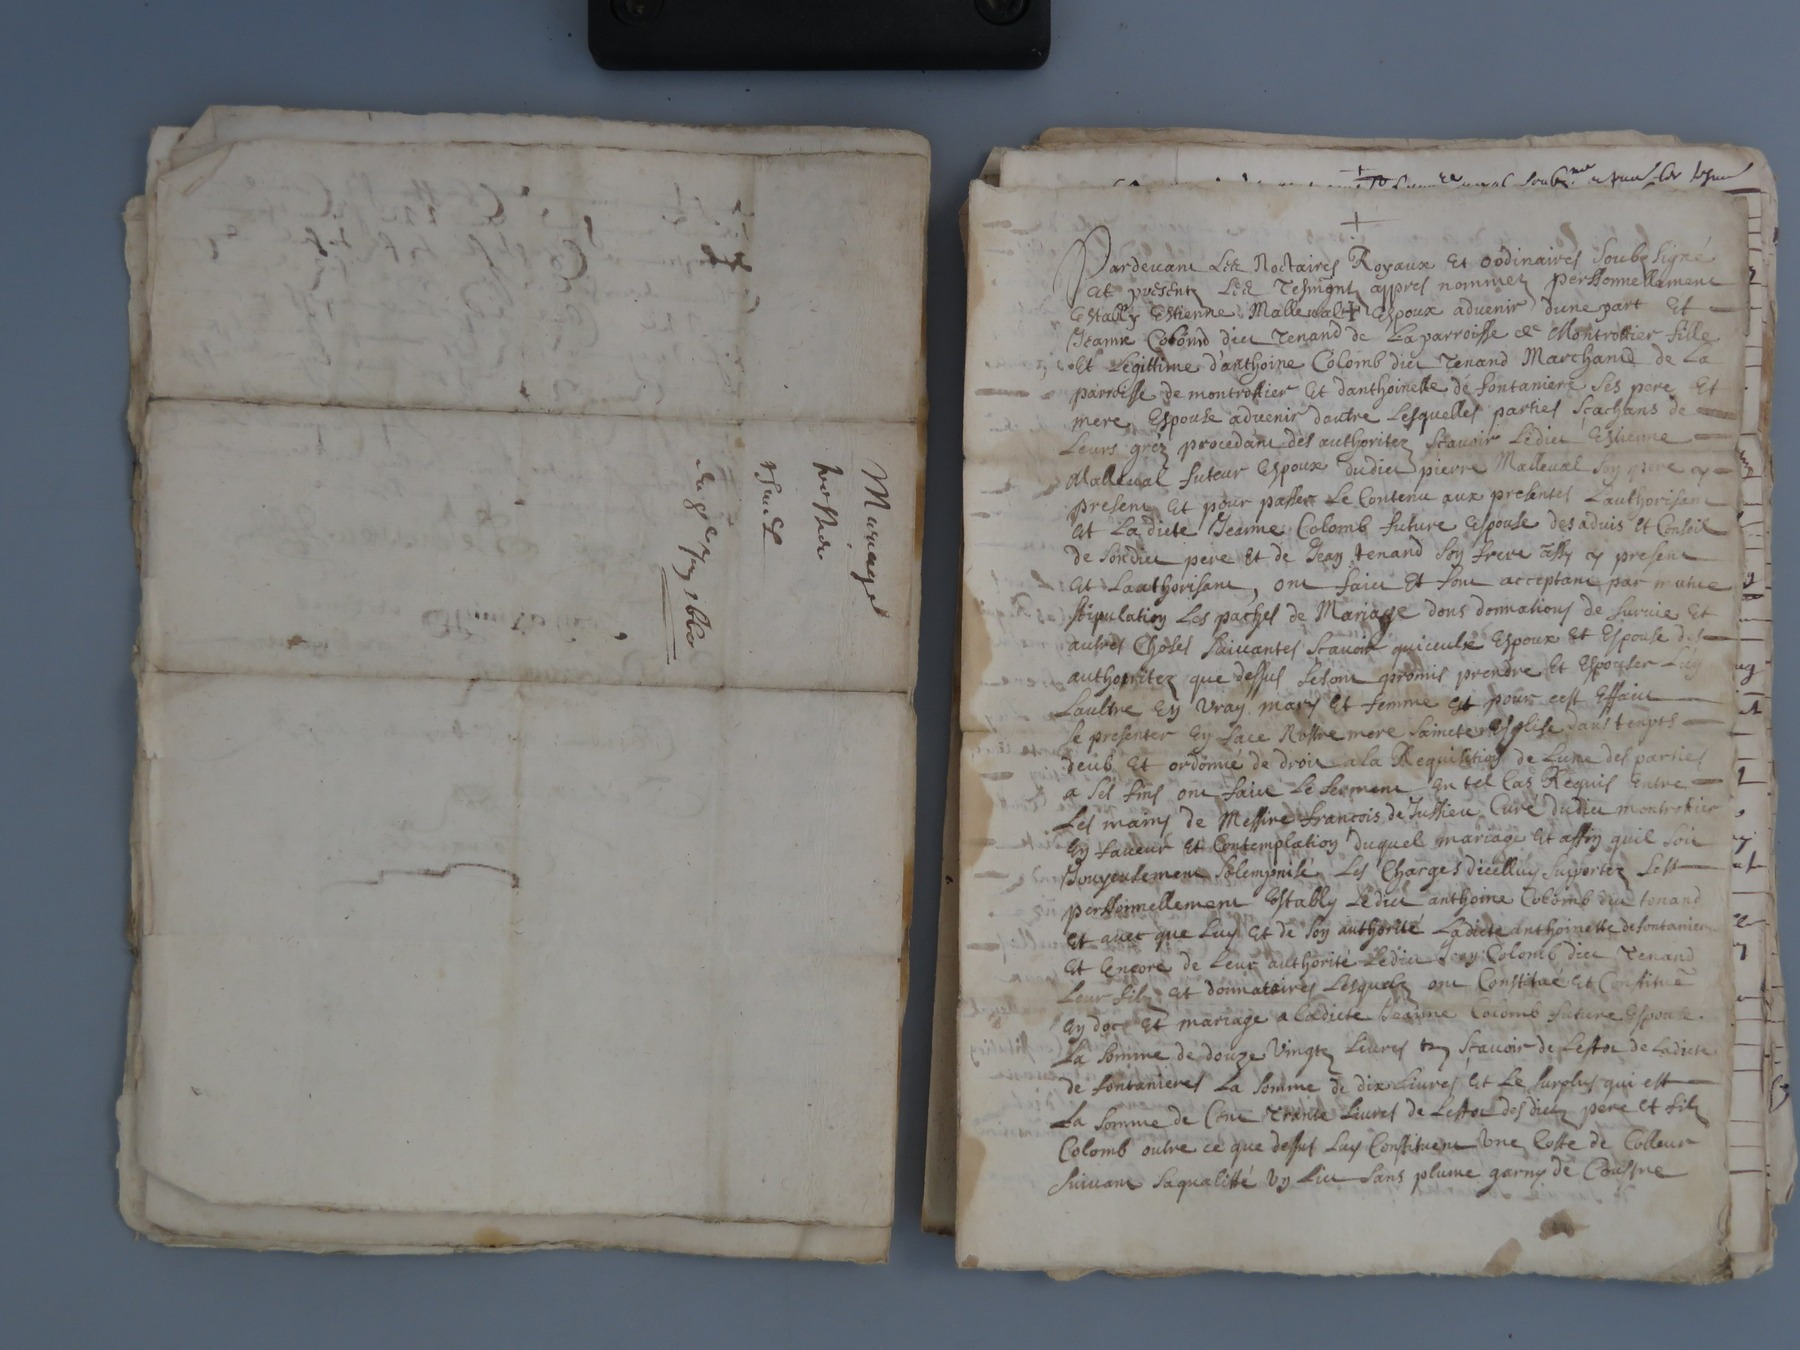 Mariage
Pardevant Les Noctaires Royaux Et ordinaires soubz signé
Et presentz Les tesmointz appres nommez personnellement
Estably Estienne Malleval + Espoux advenir dune part Et
Jeanne Colomb dict tenand de La parroisse de Montrottier fille
Et Legittime d'anthoine Colomb dict tenand Marchand de La
parroisse de montrottier Et danthoinette de fontaniere ses pere Et
mere Espouse advenir dautre Lesquelles parties scachans de
Leurs gréz procedant des authoritez scavoir Ledict Estienne
Malleval futeur Espoux dudict pierre Malleval son pere cy
present Et pour passer Le Contenu aux presentes Lauthorisant
Et La dicte Jeanne Colomb future Espouse des advis Et Conseil
de sondict pere Et de Jean tenand son frere cy present
Et Lauthorisant, ont faict Et font acceptant par mutue
stipulation Les paches de Mariage dons donnations de survie Et
autres Choses suivantes scavoir quiceulx Espoux Et Espouse des
authoritez que dessus se sont promis prendre Et Espouser Lug
Laultre En vray mary Et femme Et pour cest Effaict
se presenter En face Nostre mere saincte Esglise dans tempts
deub Et ordonné de droit a La Requisition de Lune des parties
a ses fins ont faict Le serment En tel Cas Requis Entre
Les mains de Messire francois de Jussieu Curé dudict montrotier
En faveur Et Contemplation duquel mariage Et affin quil soit
Solempnisé Les Charges dicelluy supportez sest
personnellement Estably Ledict anthoine Colomb dict tenand
Et avec que Luy Et de son authorité Ladicte anthoinette defontaniere
Et Encore de Leur authorité Ledict Jean Colomb dict tenand
Leur filz Et donnataires Lesquelz ont Constitué Et Constitue
En doct Et mariage a Ladicte Jeanne Colomb future Espouse
La somme de douze vingtz Livres tz scavoir de Lestoc de Ladicte
de fontanieres La somme de dix Livres Et Le surplus qui est
La somme de Cent trente Livres de Lestoc desdictz pere Et filz
Colomb outre ce que dessus Luy Constituent Une Cotte de Colleur
suivant saqualitté Un Lict sans plume garny de Coustre